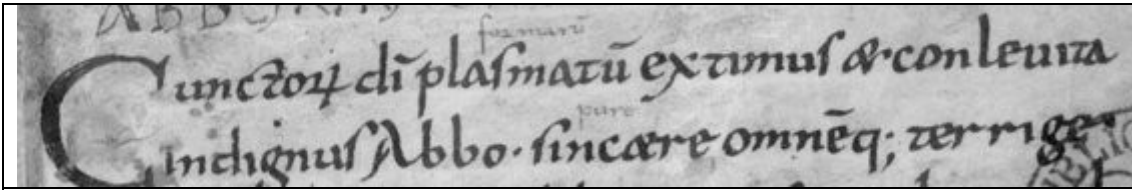 formarū
Cunctoꝝ dī plasmatū extimus & con leuita
pure
indignus Abbo. sincære omnēq; terrige